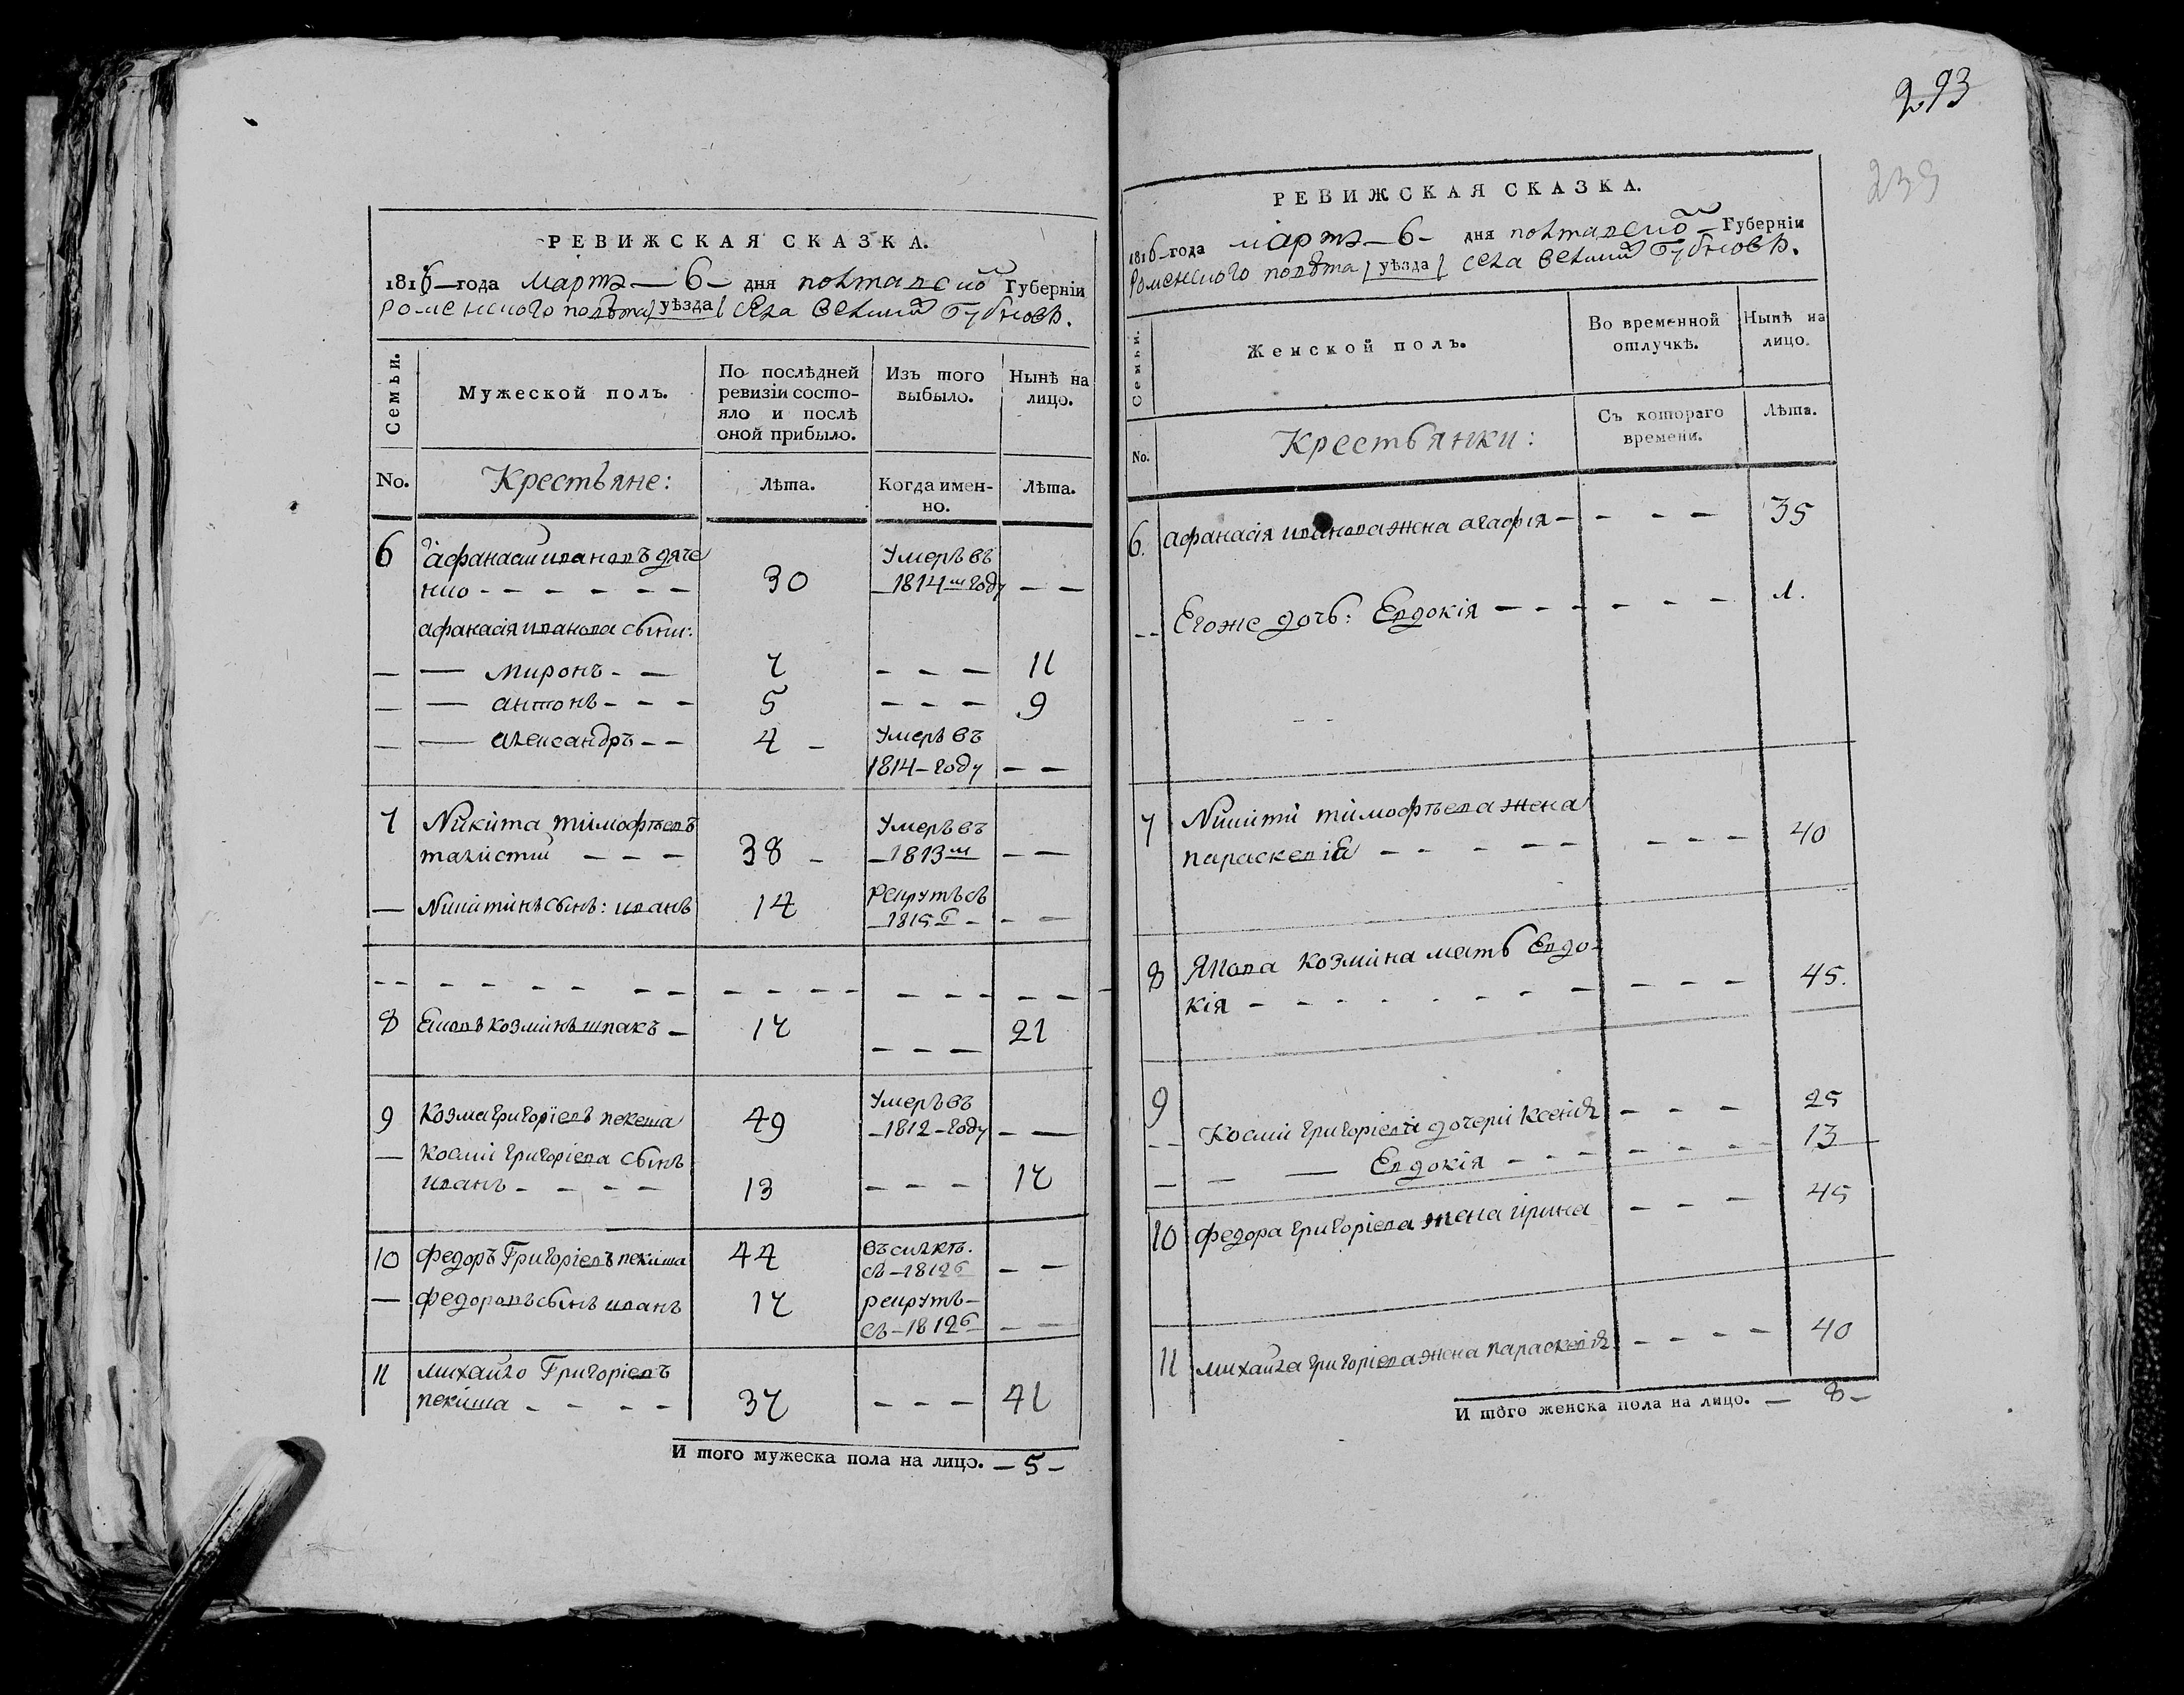 РЕВИЖСКАЯ СКАЗКА.
1816 года марта 6 дня полтавской Губерніи
роменского повѣта уѣзда села великих бубновъ.
Семьи.
Мужеской полъ.
По послѣдней ревизіи состо-
яло и послѣ
оной прибыло.
Изъ того
выбыло.
Нынѣ на
лицо.
No. Крестьяне: Лѣта. Когда имен-
но. Лѣта.
6 афанасий ивановъ дяче
нко 30 Умеръ въ
1814м году
афанасія иванова сыни:
миронъ 7 11
антонъ 5 9
александръ 4 Умеръ въ
1814 году
7 Никита тимофѣевъ
38 Умеръ въ
1813м
Никитинъ сынъ: иванъ 14 рекрутъ съ
1815г
8 козминъ шпакъ 17 21
9 Козма григоріевъ пекеша 49 Умеръ въ
1812 году
Косми григоріева сынъ
иванъ 13 17
10 федоръ Григоріевъ пекиша 44
съ 1812г
федоровъ сынъ иванъ 17 рекрутъ
съ 1812г
11 михайло Григоріевъ
пекиша 37 41
И того мужеска пола на лицо. 5
293
239
РЕВИЖСКАЯ СКАЗКА.
1816 года марта 6 дня полтавской Губерніи
Роменского повѣта уѣзда села великих бубновъ.
Семьи.
Женской полъ.
Во временной
отлучкѣ.
Нынѣ на
лицо.
No. Крестьянки: Съ котораго
времени. Лѣта.
6. афанасія иванова жена агафія 35
Егоже дочь: Евдокія 1.
7 Никити тимофѣева жена
параскевія 40
8 Якова козмина мать Евдо-
кія 45.
9 Косми григоріева дочери ксенія 25
Евдокія 13
10 федора григоріева жена ирина 45
11 михайла григоріева жена параскевія 40
И того женска пола на лицо. 8